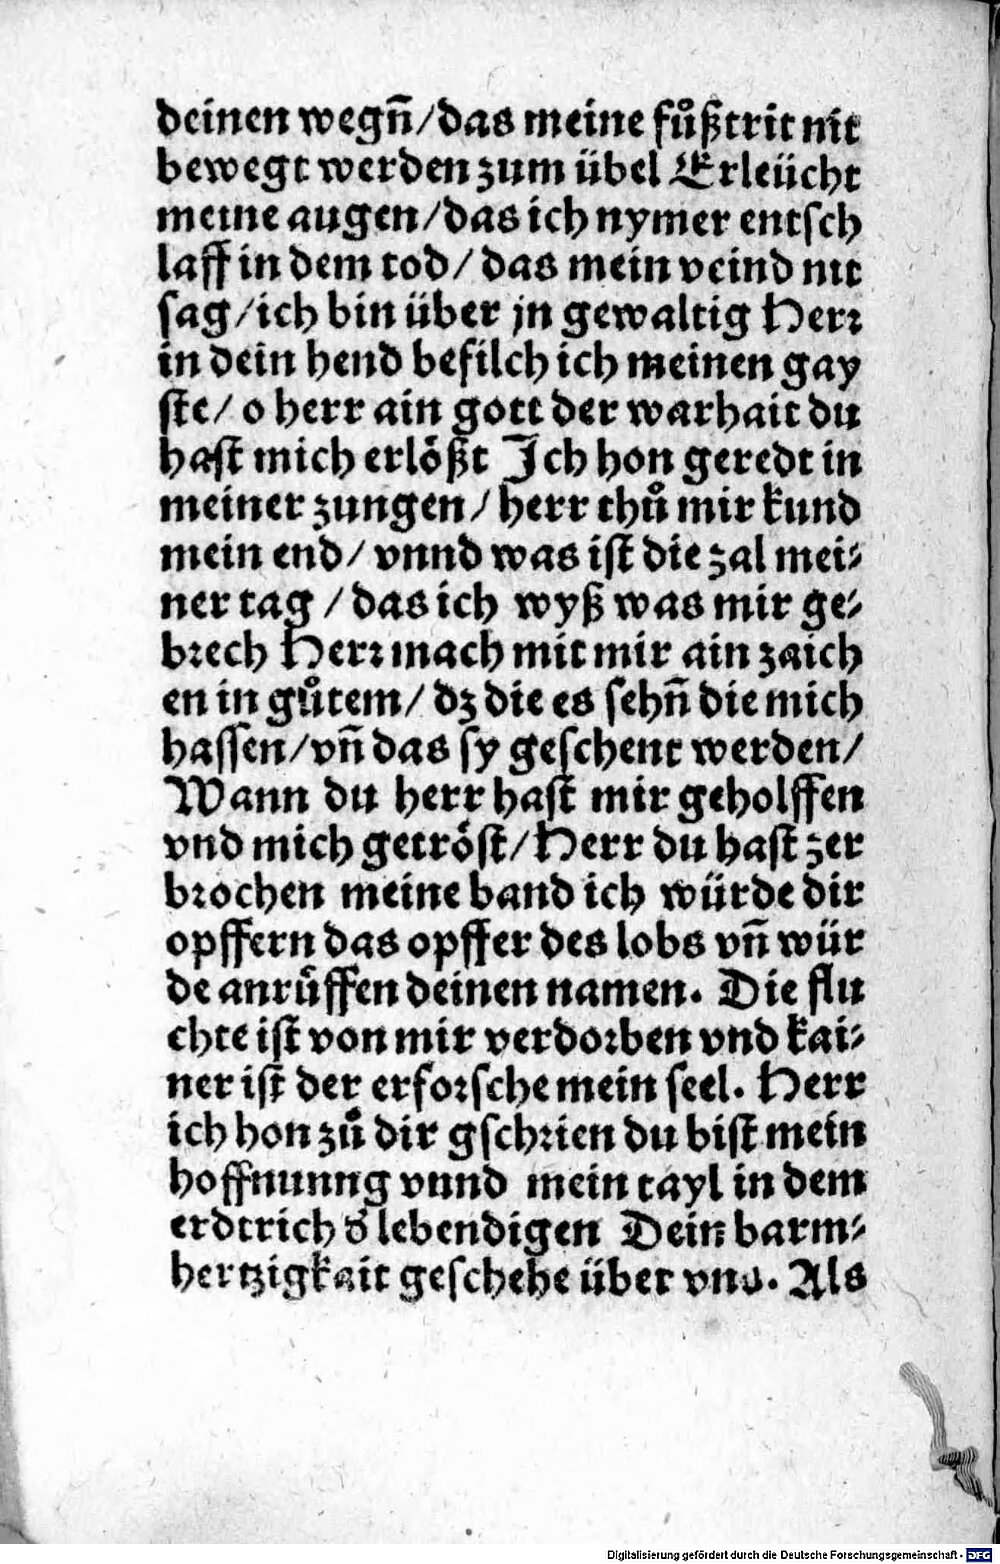 deinen wegñ/das meine fůßtrit nit
bewegt werden zum übel Erleücht
meine augen/das ich nymer entsch
laff in dem tod/das mein veind nit
sag/ich bin über jn gewaltig Herꝛ
in dein hend befilch ich meinen gay
ste/o herr ain gott der warhait du
hast mich erlößt Ich hon geredt in
meiner zungen/herr thů mir kund
mein end/vnnd was ist die zal mei⸗
ner tag /das ich wyß was mir ge⸗
bꝛech Herꝛ mach mit mir ain zaich
en in gůtem/dz die es sehñ die mich
hassen/vñ das sy geschent werden/
Wann du herr hast mir geholffen
vnd mich getröst/Herr du hast zer
bꝛochen meine band ich würde dir
opffern das opffer des lobs vñ wür
de anrůffen deinen namen. Die flu
chte ist von mir verdoꝛben vnd kai⸗
ner ist der erfoꝛsche mein seel. Herr
ich hon zů dir gschꝛien du bist mein
hoffnunng vnnd mein tayl in dem
erdtrich d̕ lebendigen Dein barm⸗
hertzigkait geschehe über vns. Als
Digitalisierung gefördert durch die Deutsche Forschungsgemeinschaft - DFG